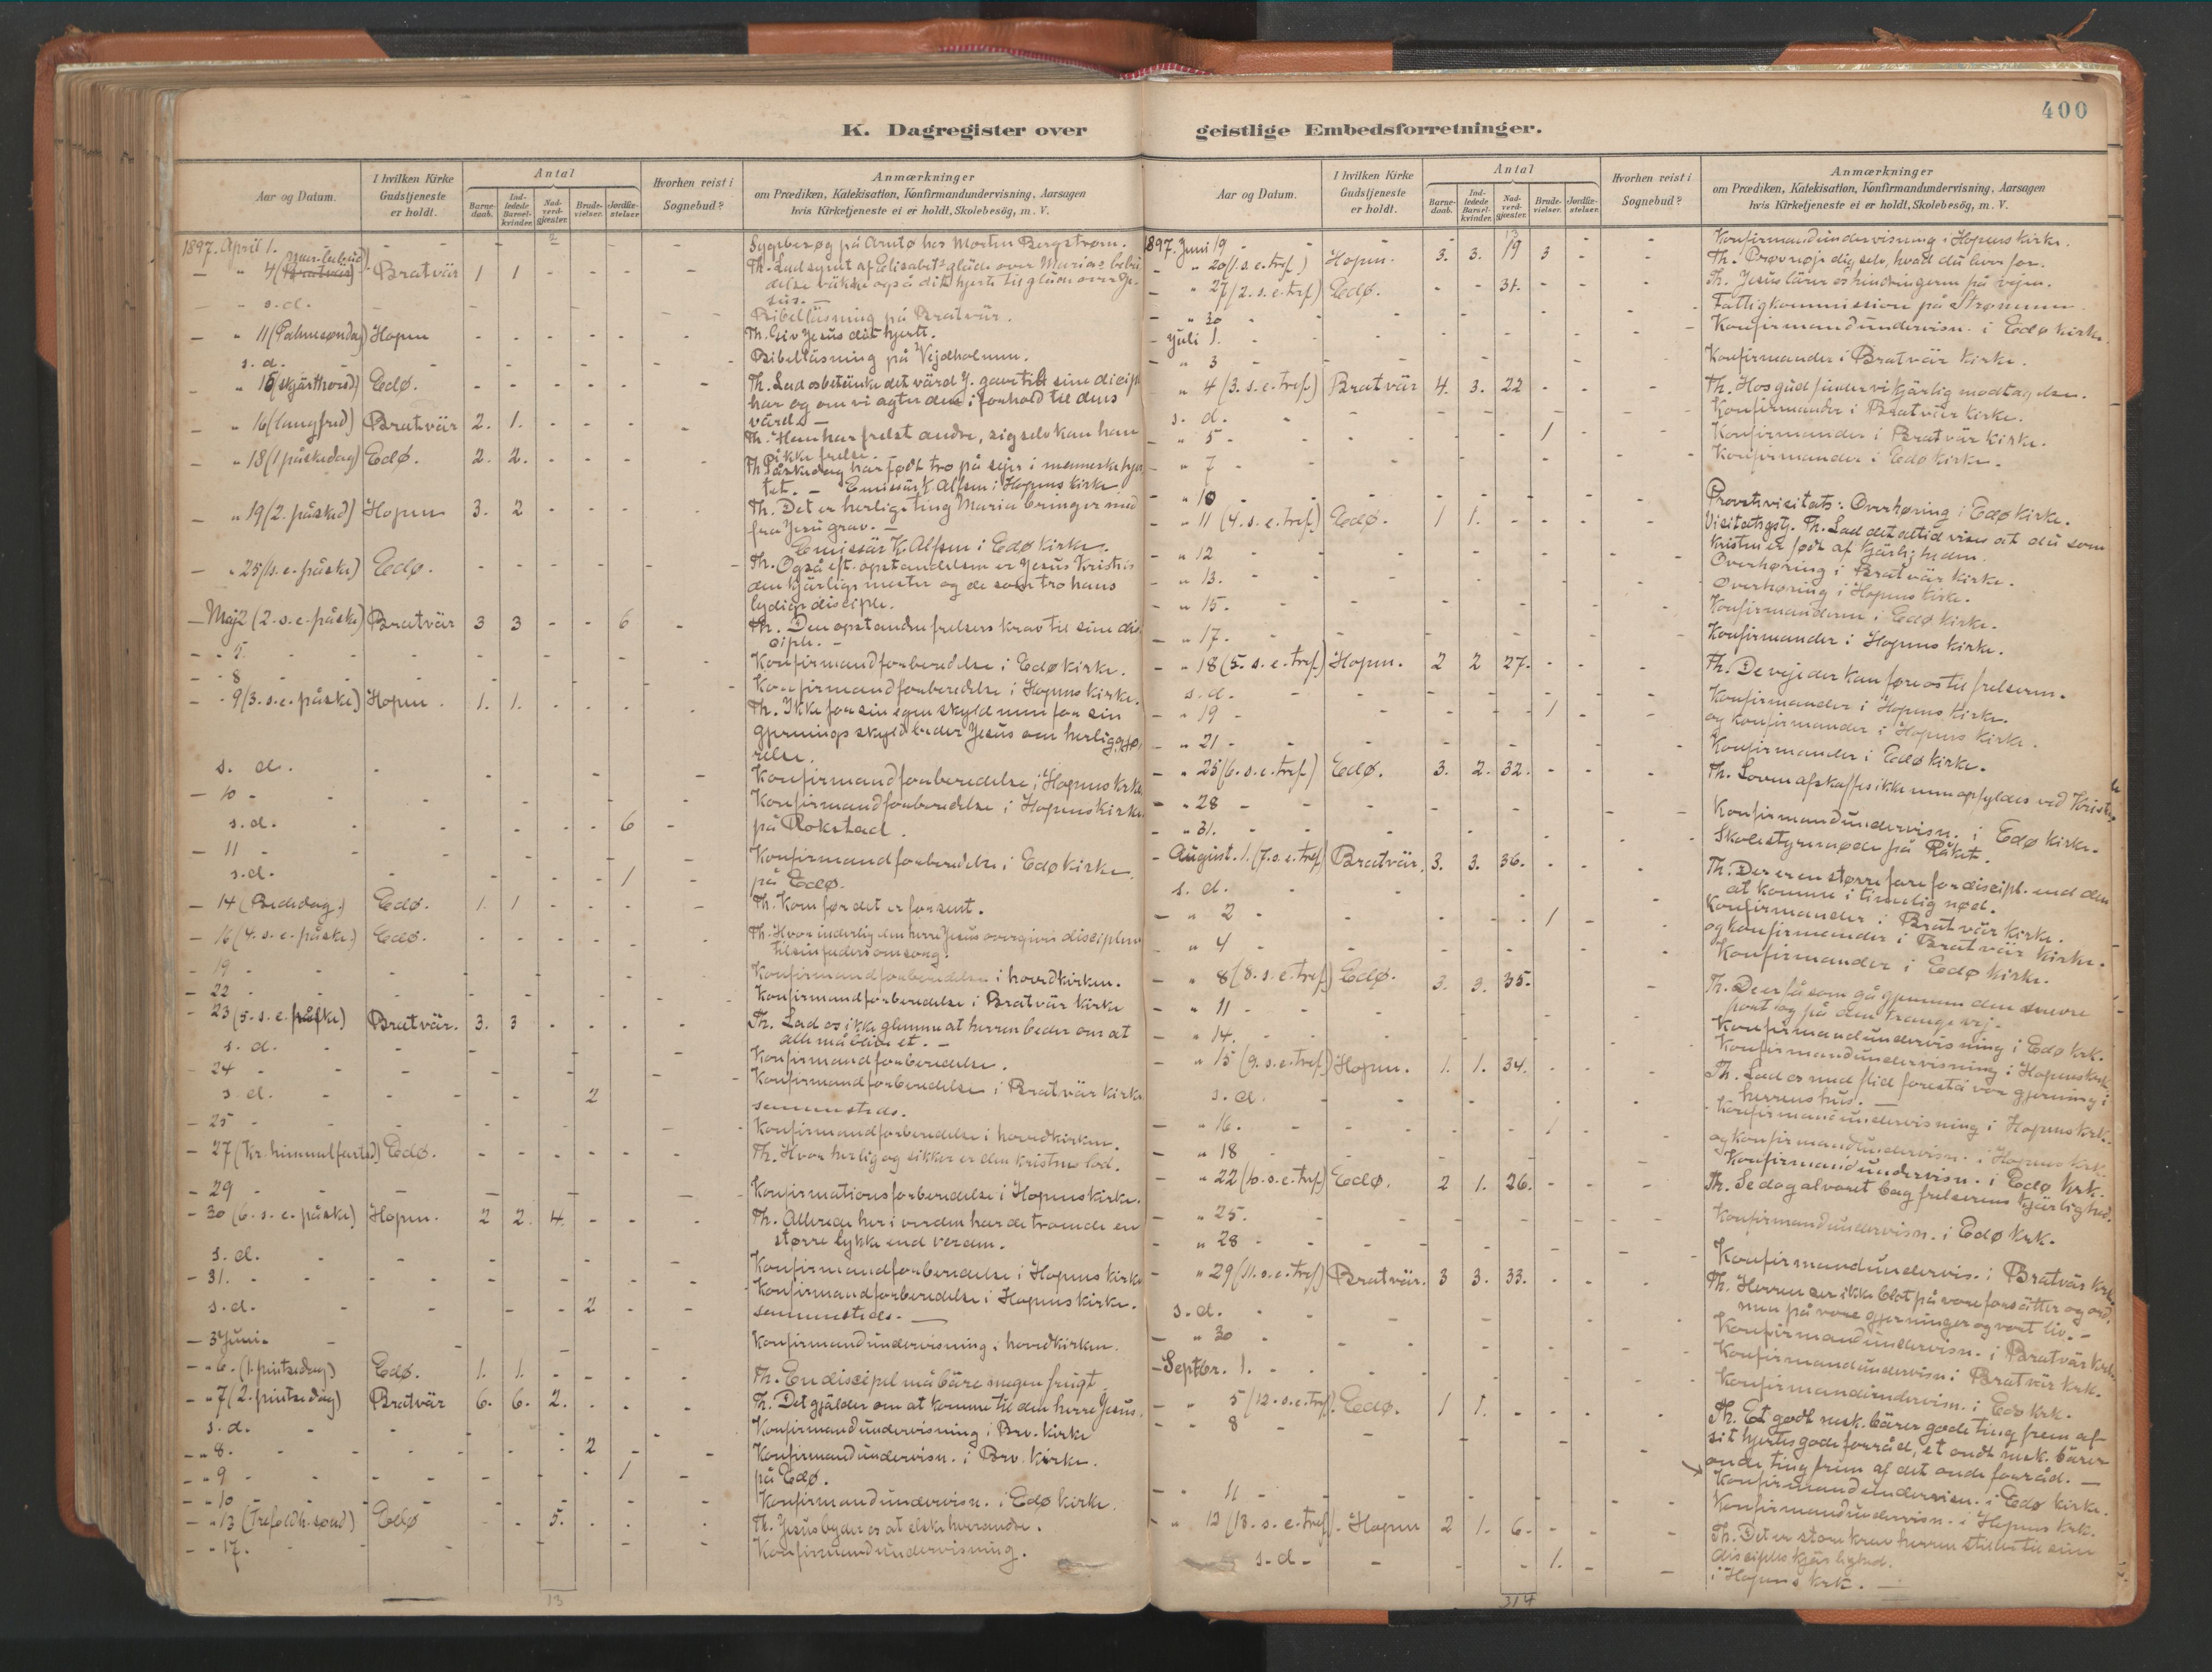 400
K. Dagregister over
geistlige Embedsforretninger.
Aar og Datum.
I hvilken Kirke Gudstjeneste er holdt.
Antal
Barne-daab.
Ind-ledede Barsel-kvinder.
Nad-verd-gjester.
Brude-vielser.
Jordfæ-stelser
Hvorhen reist i Sognebud?
Anmærkninger
om Prædiken, Katekisation, Konfirmandundervisning, Aarsagen
hvis Kirketjeneste ei er holdt, Skolebesög, m. V.
1897. April 1. - - 2 - - Sygebesøg på Arntø hos Morten Bergstrøm.
- " 4 Bratvär 1 1 - - - - Th. Lad synet af Elisabets gläde over Marias
også dit hjerte til gläde over Je-
sus. -
- " s.d. Bibelläsning på Bratvär.
- " 11 (Palmesøndag) Hopen - - - - - - Th. Giv Jesus dit hjerte.
s. d. - Bibelläsning på Vejdholmen.
- " 15 (skjärthorsd) Edø. - - - - - - Th. Lad os betänke det värd J. gav sine discipl
har og om vi agter dem i forhold til dens
värd. -
- " 16 (langfred) Bratvär 2. 1. - - - - Th. Han har frelst andre, sig selv kan han
ikke frelse. -
- " 18 (1 påskedag) Edø. 2. 2. - - - - Th. Påskedag har født tro på sejer i menneskehjer
tet. - Emissär K. Alfsen i Hopens kirke
- " 19 (2. påsked) Hopen 3. 2 - - - - Th. Det er herlige ting Maria bringer med
fra Jesu grav. -
Emissär K. Alfsen i Edø kirke.
- " 25 (1. s. e. påske) Edø. - - - - - - Th. Også eft. opstandelsen er Jesus Kristus
den kjärlige mester og de som tro hans
lydige disciple.
- Maj 2 (2. s. e. påske) Bratvär 3 3 - - 6 - Th. Den opstandne frelsers krav til sine dis
ciple. -
- " 5. - - Konfirmandforberedelse i Edø kirke.
- " 8 - - Konfirmandforberedelse i Hopens kirke.
- " 9 (3. s. e. påske) Hopen. 1. 1. - - - - Th. Ikke for sin egen skyld men for sin
gjernings skyld beder Jesus om herliggjø,
relse.
s. d. - - Konfirmandforberedelse i Hopens kirke.
- 10 - - Konfirmandforberedelse i Hopens kirke.
s.d. - - - - - 6 - på Rokstad.
- 11 - - Konfirmandforberedelse i Edø kirke.
s.d. - - - - - 1 - på Edø.
- 14 (Bededag.) Edø. 1. 1 - - - - Th. Kom før det er for sent.
- 16 (4. s. e. påske.) Edø. - - - - - - Th. Hvor inderlig den herre Jesus overgiver disciplene
til sin faders omsorg.
- 19 - - Konfirmandforberedelse i hovedkirken.
- 22 - - Konfirmandforberedelse i Bratvär kirke
- 23 (5. s. e. påske) Bratvär. 3. 3 - - - - Th. Lad os ikke glemme at herren beder om at
alle må blive et. -
s. d. - - Konfirmandforberedelse.
- 24 - - Konfirmandforberedelse i Bratvär kirke
s. d. - - - - 2 - - sammesteds.
- 25 - - Konfirmandforberedelse i hovedkirken.
- 27 (Kr. himmelfartsd) Edø. - - - - - - Th. Hvor herlig og sikker er den kristnes lod.
- 29 - - Konfirmationsforberedelse i Hopens kirke.
- 30 (6. s. e. påske) Hopen. 2 2. 4. - - - Th. Allerede her i verden har de troende en
større lykke end verden.
s. d. - - Konfirmandforberedelse i Hopens kirke
- 31. - - Konfirmandforberedelse i Hopens kirke.
s.d. - - - - 2 - - sammesteds. -
- 3 Juni. - Konfirmandundervisning i hovedkirken.
- " 6. (1. pintsedag) Edø. 1. 1. - - - - Th. En discipel må bäre megen frugt.
- " 7 (2. pintsedag) Bratvär 6. 6. 2. - - - Th. Det gjälder om at komme til den herre Jesus.
s.d. - - Konfirmandundervisning i Brv. kirke
- " 8. - - - - 2 - - Konfirmandundervisn. i Brv. kirke.
- " 9 - - - - - 1 - på Edø.
- " 10 - - Konfirmandundervisn. i Edø kirke.
- " 13 (Trefoldh. sønd) Edø - - 5. - - - Th. Jesus byder os at elske hverandre.
- " 17. - - Konfirmandundervisning.
13
Aar og Datum.
I hvilken Kirke Gudstjeneste er holdt.
Antal
Barne-daab.
Ind-ledede Barsel-kvinder.
Nad-verd-gjester.
Brude-vielser.
Jordfæ-stelser.
Hvorhen reist i Sognebud?
Anmærkninger
om Prædiken, Katekisation, Konfirmandundervisning, Aarsagen
hvis Kirketjeneste ei er holdt, Skolebesög, m. V.
13
1897. Juni 19 - - Konfirmandundervisning i Hopens kirke.
- " 20 (1. s. e. tref.) Hopen. 3. 3. 19 3 - - Th. Prøv nøje dig selv, hvad du lever for.
- " 27 (2. s. e. tref.) Edø. - - 31. - - - Th. Jesus lärer os hindringerne på vejen.
- " 30 - - Fattigkommission på Strømmen.
- Juli 1. - - Konfirmandundervisn. i Edø kirke.
- " 3 - - Konfirmander i Bratvär kirke.
" 4 (3. s. e. tref.) Bratvär 4. 3. 22 - - - Th. Hos gud finder vi kjärlig modtagelse.
s. d. - - Konfirmander i Bratvär kirke.
" 5 - - - - 1 - - Konfirmander i Bratvär kirke.
- " 7 - - Konfirmander i Edø kirke.
- " 10 - - Provstevisitats: Overhøring i Edø kirke.
- " 11 (4. s. e. tref.) Edø. 1 1. - - - - Visitatsgstj. Th. Lad det altid vises at du som
kristen er født af kjärligheden.
- " 12 - - Overhøring i Bratvär kirke.
- " 13. - - Overhøring i Hopens kirke.
- " 15. - - Konfirmanderne i Edø kirke.
- " 17. - - Konfirmander i Hopens kirke.
- " 18 (5. s. e. tref.) Hopen. 2 2 27. - - - Th. De veje der kan føre os til frelseren.
s. d. - - Konfirmander i Hopens kirke.
- " 19 - - - - 1 - - og konfirmander i Hopens kirke.
- " 21 - - Konfirmander i Edø kirke.
- " 25 (6. s. e. tref.) Edø. 3. 2. 32. - - - Th. Loven afskaffes ikke men opfyldes ved Kristus
- " 28 - - Konfirmandundervisn. i Edø kirke.
- " 31. - - Skolestyremøde på Råket.
- August. 1. (7. s. e. tref) Bratvär. 3. 3. 36. - - - Th. Der er en større fare for discipl. end den
at komme i timelig nød.
s. d. - - Konfirmander i Bratvär kirke.
- " 2 - - - - 1 - - og konfirmander i Bratvär kirke.
- " 4 - - Konfirmander i Edø kirke.
- " 8 (8. s. e. tref.) Edø. 3. 3. 35. - - - Th. De er få som gå gjennem den snevre
port og på den trange vej. -
- " 11 - - Konfirmandundervisning i Edø krk.
- " 14. - - Konfirmandundervisning i Hopens krk.
- " 15 (9. s. e. tref.) Hopen. 1. 1. 34. - - - Th. Lad os med flid forestå vor gjerning i
herrens hus. -
s. d. - - Konfirmandundervisning i Hopens krk.
- " 16. - - - - 1 - - og konfirmandundervisn. i Hopens krk.
- " 18 - - Konfirmandundervisn. i Edø krk.
- " 22 (10. s. e. tref.) Edø. 2 1. 26. - - - Th. Se dog alvoret bag frelserens kjärlighed.
- " 25. - - Konfirmandundervisn. i Edø krk.
- " 28 - - Konfirmandundervis. i Bratvär krk.
- " 29 (11. s. e. tref) Bratvär. 3 3. 33. - - - Th. Herren ser ikke blot på vore forsätter og ord,
men på vore gjerninger og vort liv. -
s. d. - - Konfirmandundervisn. i Bratvär krk.
- " 30 - - Konfirmandundervisn i Bratvär krk.
- Septbr. 1. - - Konfirmandundervisn. i Edø krk.
- " 5 (12. s. e. tref). Edø. 1 1. - - - - Th. Et godt nesk. bärer gode ting frem af
sit hjertes gode forråd, et ondt nesk. bärer
onde ting frem af det onde forråd. -
- " 8 - - Konfirmandundervisn. i Edø kirke.
- " 11 - - Konfirmandundervisn. i Hopens krk.
- " 12 (13. s. e. tref). Hopen 2 1. 6. - - - Th. Det er store krav herren stiller til sine
disciples kjärlighed.
s. d. - - - - 1. - - i Hopens krk. -
314